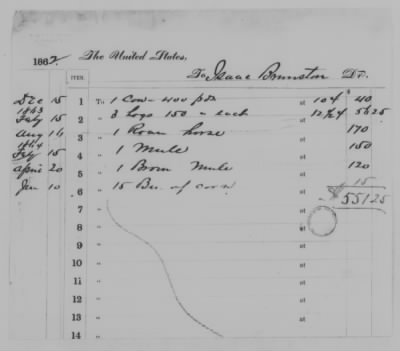 1862. The United States,
To Isaac Brunston Dr.
ITEM.
Dec 15 1 To 1 Cow - 400 pds at 10 ¢ 40
1863
Feby 15 2 " 3 hogs 150 " each at 12½ ¢ 56 25
Aug 16 3 " 1 Roan horse at 170
1864
Feby 15 4 " 1 Mule at 150
April 20 5 " 1 Brown Mule at 120
Jan 10 6 " 15 Bu. of corn at 15
7 " at 551 25
8 " at
9 " at
10 " at
11 " at
12 " at
13 " at
14 " at